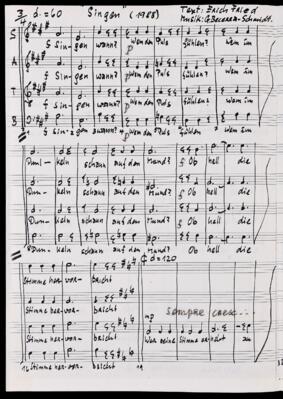 3/4 d. = 60 Singen (1988) Text: Erich Fried
Musik: G. Becerra-Schmidt.
S
f Singen wann? p Wenn den Puls fühlen? Wem im
A
f Singen wann? p Wenn den Puls fühlen? Wem im
T
f Singen wann? p Wenn den Puls fühlen? Wem im
B
f Singen wann? p Wenn den Puls fühlen Wem im
Dun- keln schaun auf den Mund? f Ob hell die
Dun- keln schaun auf den Mund? f Ob hell die
Dun- keln schaun auf den Mund? f Ob hell die
Dun- keln schaun auf den Mund? f Ob hell die
¢ d = 120
Stimme hervor- bricht
Stimme hervor- bricht
sempre cresc...
Stimme hervor- bricht
mp Wer seine Stimme erhebt
Stimme hervor- bricht